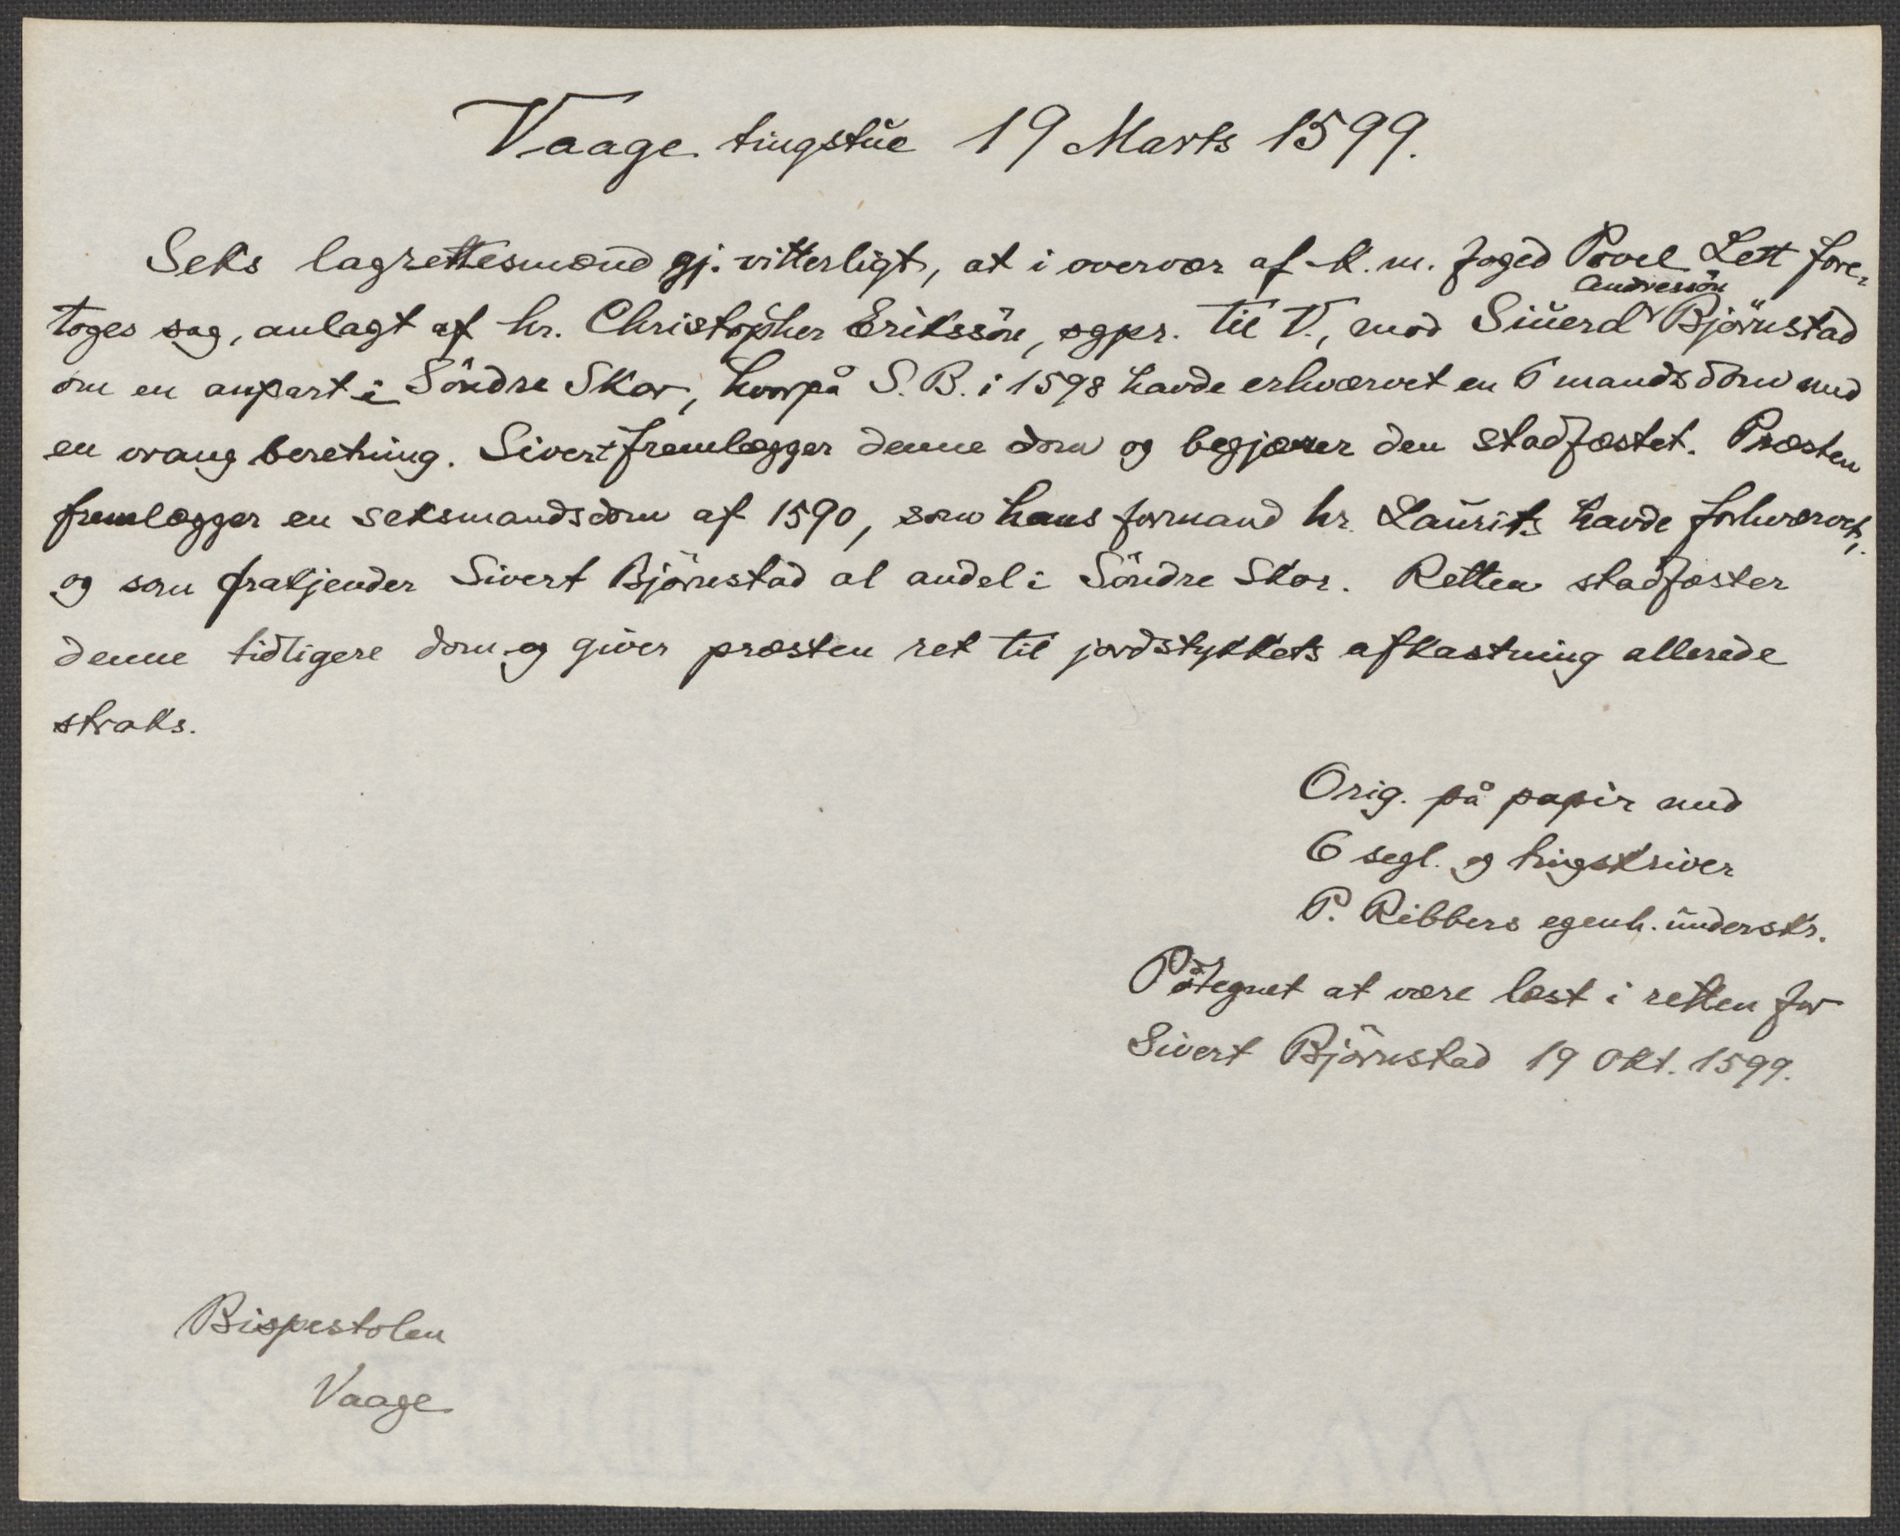 Vaage tingstue 19 Marts 1599.
Seks lagrettesmænd gj. vitterligt, at i overvær af k. m. foged Povel Lett fore-
toges sag, anlagt af hr. Christopher Erikssön, sgpr. til V., mod Siuerd Andressön Björnstad
om en anpart i Söndre Skar, hvorpå S. B. i 1598 havde erhværvet en 6 mands dom med
en vrang beretning. Sivert fremlægger denne dom og begjærer den stadfæstet. Præsten
fremlægger en seksmandsdom af 1590, som hans formand hr. Laurits havde forhværvet,
og som frakjender Sivert Björnstad al andel i Söndre Skar. Retten stadfæster
denne tidligere dom og giver præsten ret til jordstykkets afkastning allerede
straks.
Orig. på papir med
6 segl. og tingskriver
P. Ribbers egenh. underskr.
Påtegnet at være læst i retten for
Sivert Björnstad 19 Okt. 1599.
Bispestolen
Vaage